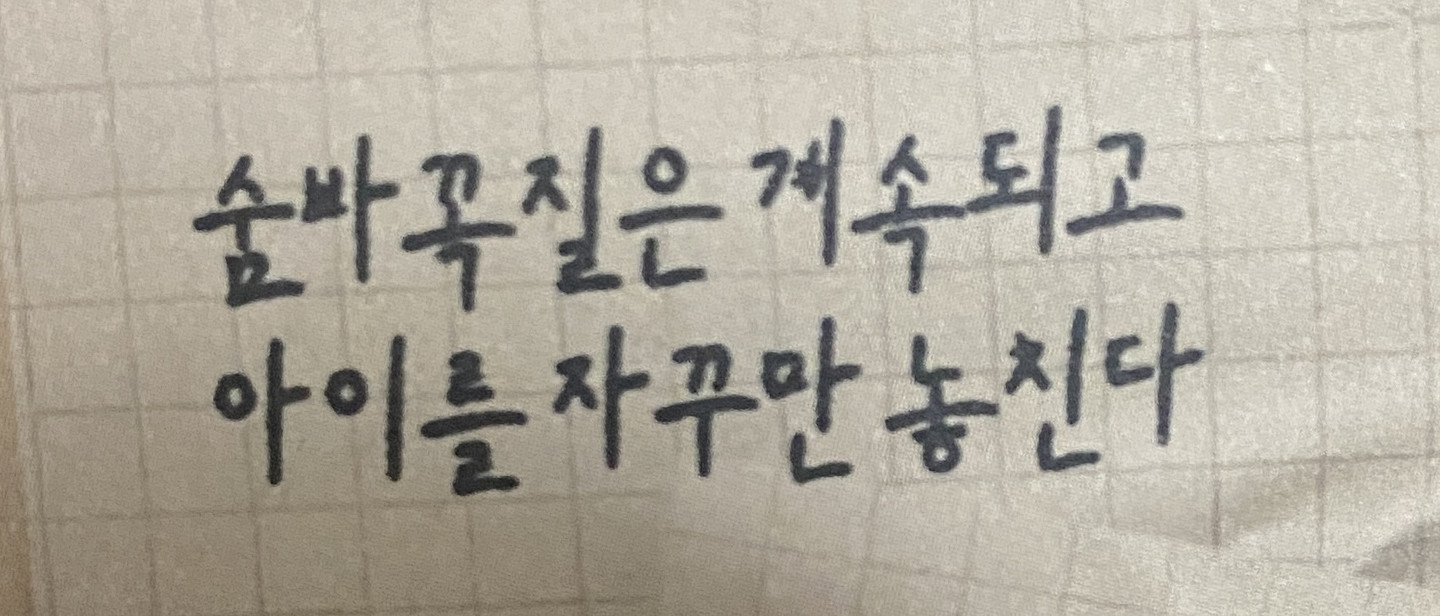 숨바꼭질은 계속되고
아이를 자꾸만 놓친다